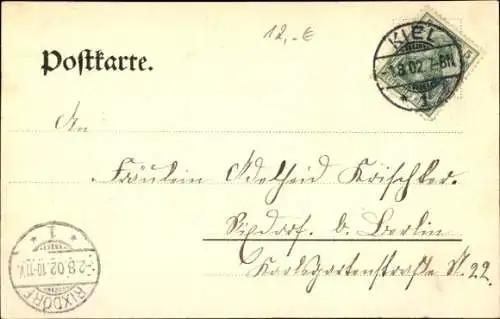 12,-€
Postkarte.
KIEL
1.8.02.7-8N.
* 1
5
An
Fräulein Adelheid Krischker.
Rixdorf. b. Berlin
Karlsgartenstraße N. 22.
* 1 *
-2.8.02.10-11V.
RIXDORF